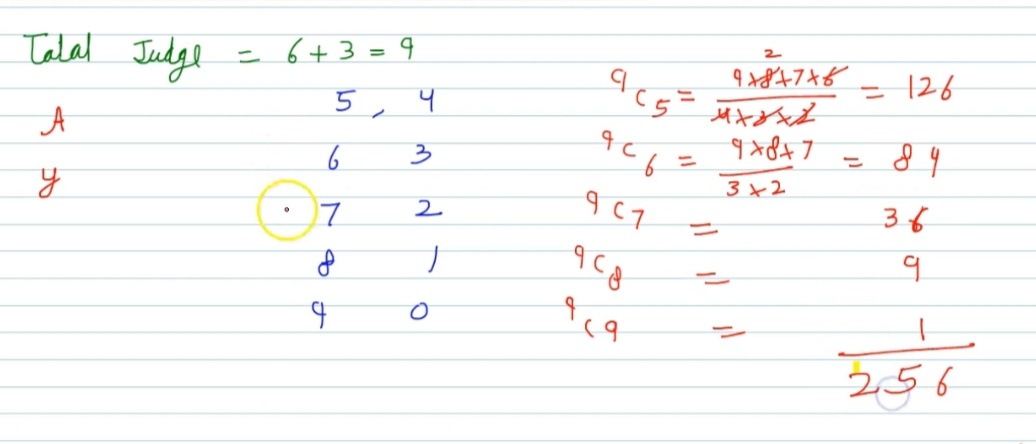 Total Judge = 6 + 3 = 9
A
y
5, 4
6 3
7 2
8 1
9 0
2
9C5 = 9×8×7×6 / 4×3×2 = 126
9C6 = 9×8×7 / 3×2 = 84
9C7 = 36
9C8 = 9
9C9 = 1
256